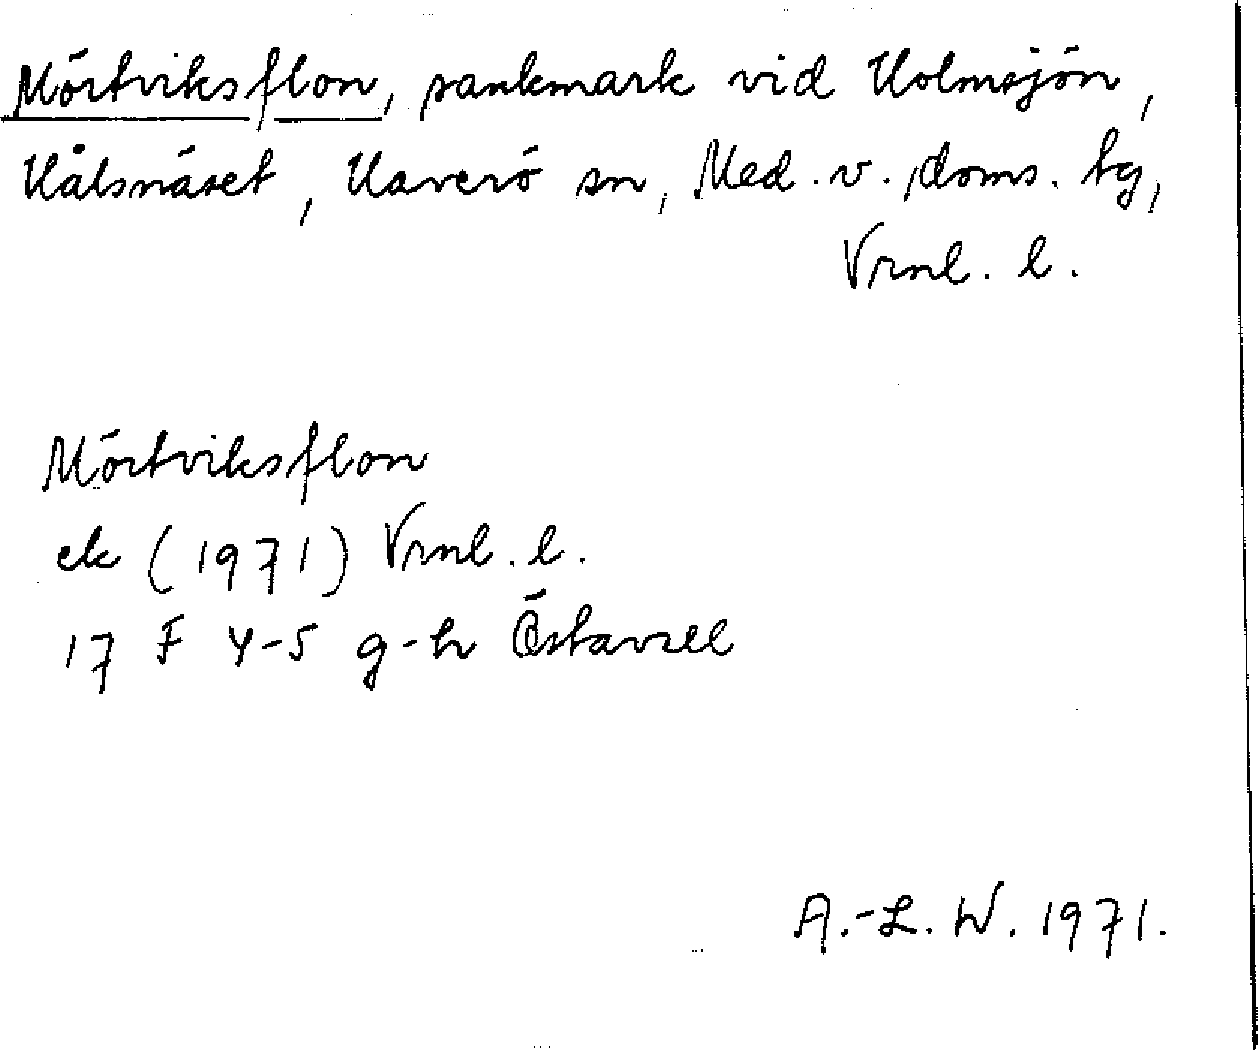 Mörtviksflon, sankmark vid Holmsjön,
Kålsnäset, Haverö sn, Med. v. doms. tg,
Vrnl. l.
Mörtviksflon
ek (1971) Vrnl. l.
17 F 4-5 g-h Östavall
A.-L. W. 1971.